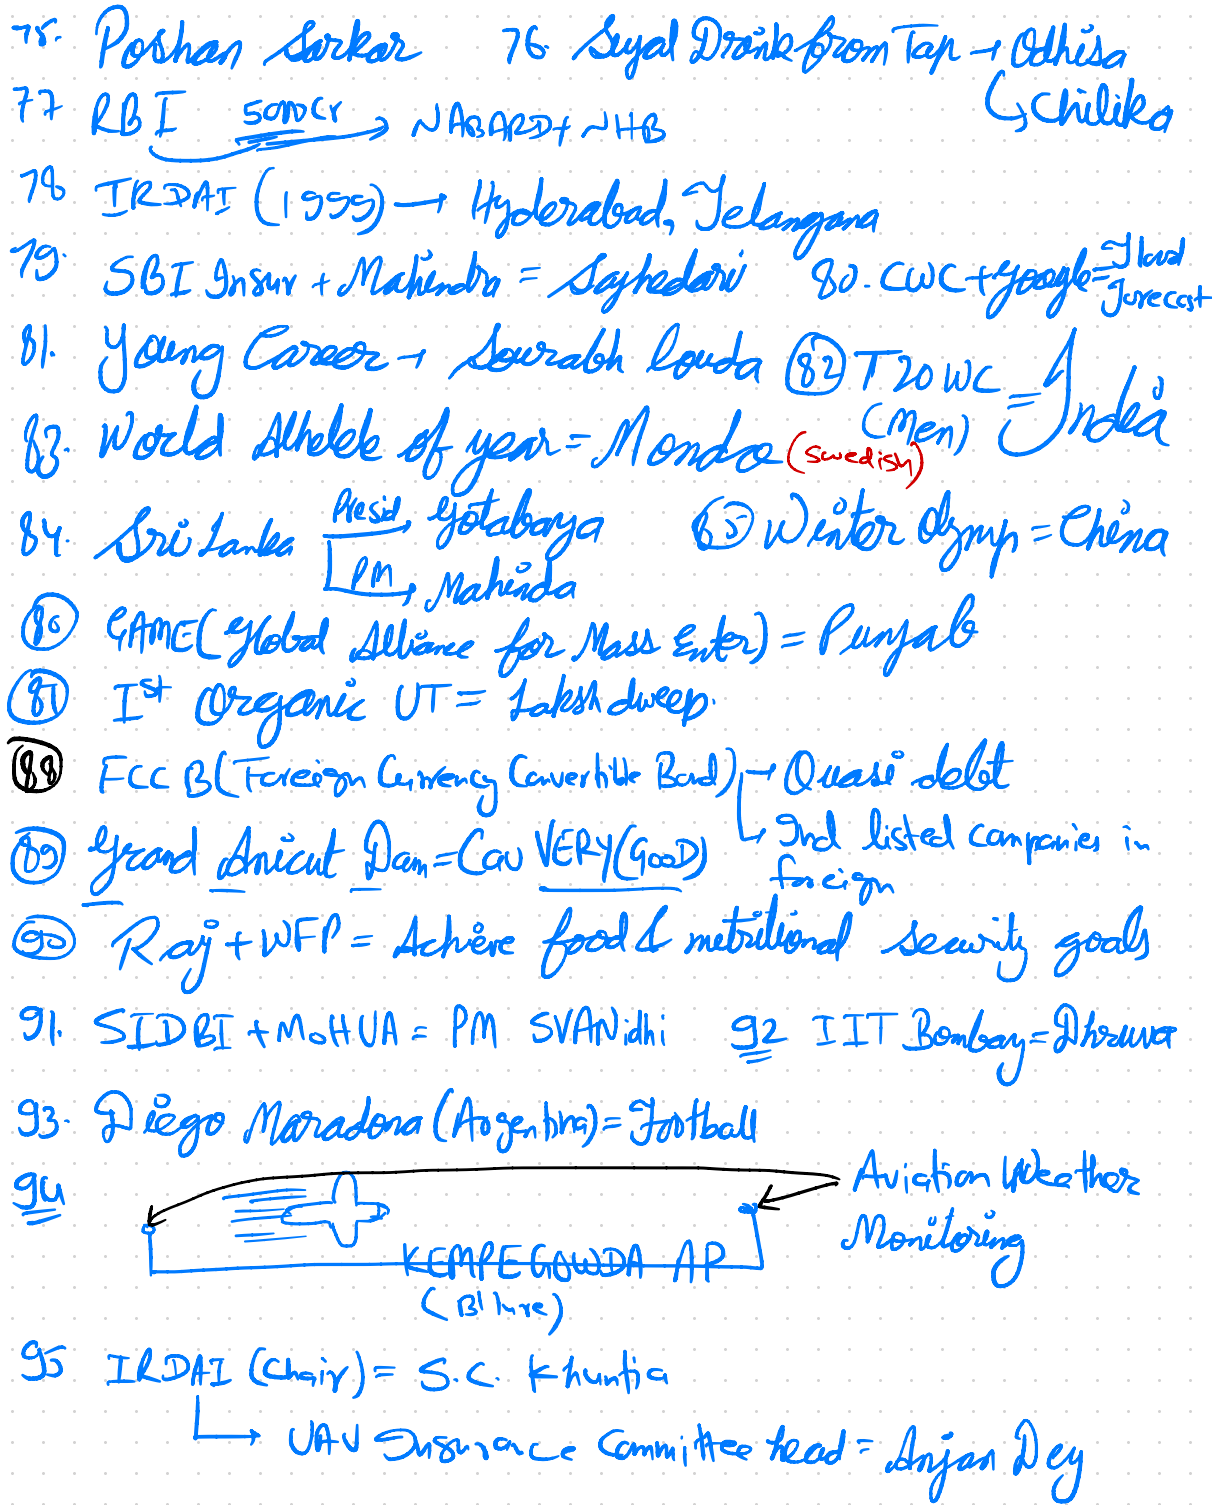 75. Poshan Sarkar 76. Sujal Drink from Tap → Odhisa
↳ Chilika
77 RBI 5000Cr → NABARD + NHB
78 IRDAI (1999) → Hyderabad, Telangana
79. SBI Insur + Mahendra = Sayhedari 80. CWC + Google = Flood Forecast
81. Young Career → Sourabh Louda 82 T20 WC (Men) = India
83. World Athelete of year = Mondo (Swedish)
84. Sri Lanka Presid → Gotabaya 85 Winter Olymp = China
PM → Mahinda
86 GAME (Global Alliance for Mass Enter) = Punjab
87 Ist Organic UT = Lakshdweep.
88 FCCB (Foreign Currency Convertible Bond) → Quasi debt
↳ Ind listed companies in foreign
89 Grand Anicut Dam = CauVERY (GooD)
90 Raj + WFP = Achieve food & nutritional security goals
91. SIDBI + MoHUA = PM SVANidhi 92 IIT Bombay = Dhruva
93. Diego Maradona (Argentina) = Football
94 Aviation Weather
Monitoring
KEMPEGOWDA AP
(B'lure)
95 IRDAI (Chair) = S.C. Khuntia
↳ UAV Insurance Committee head = Anjan Dey